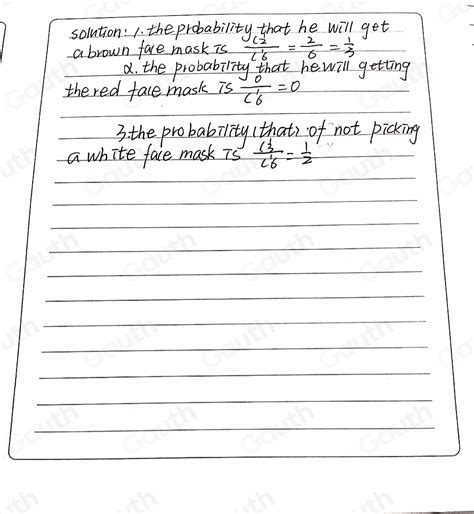 solution: 1. the probability that he will get
a brown face mask is C¹₂/C¹₆ = 2/6 = 1/3
2. the probability that he will getting
the red face mask is 0/C¹₆ = 0
3. the probability (that) of not picking
a white face mask is C¹₃/C¹₆ = 1/2
Gauth